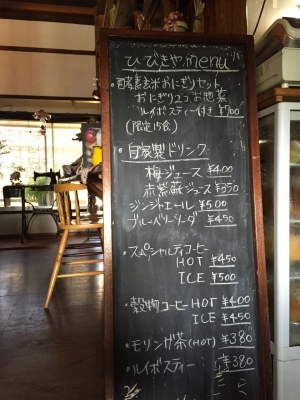 ひびきや menu
・酵素玄米おにぎりセット
おにぎり2コ お惣菜
ルイボスティー付き ¥700
(限定15食)
・自家製ドリンク
梅ジュース ¥400
赤紫蘇ジュース ¥350
ジンジャエール ¥500
ブルーベリーソーダ ¥450
・スペシャルティコーヒー
HOT ¥450
ICE ¥500
・穀物コーヒー HOT ¥400
ICE ¥450
・モリンガ茶(HOT) ¥380
・ルイボスティー ¥380